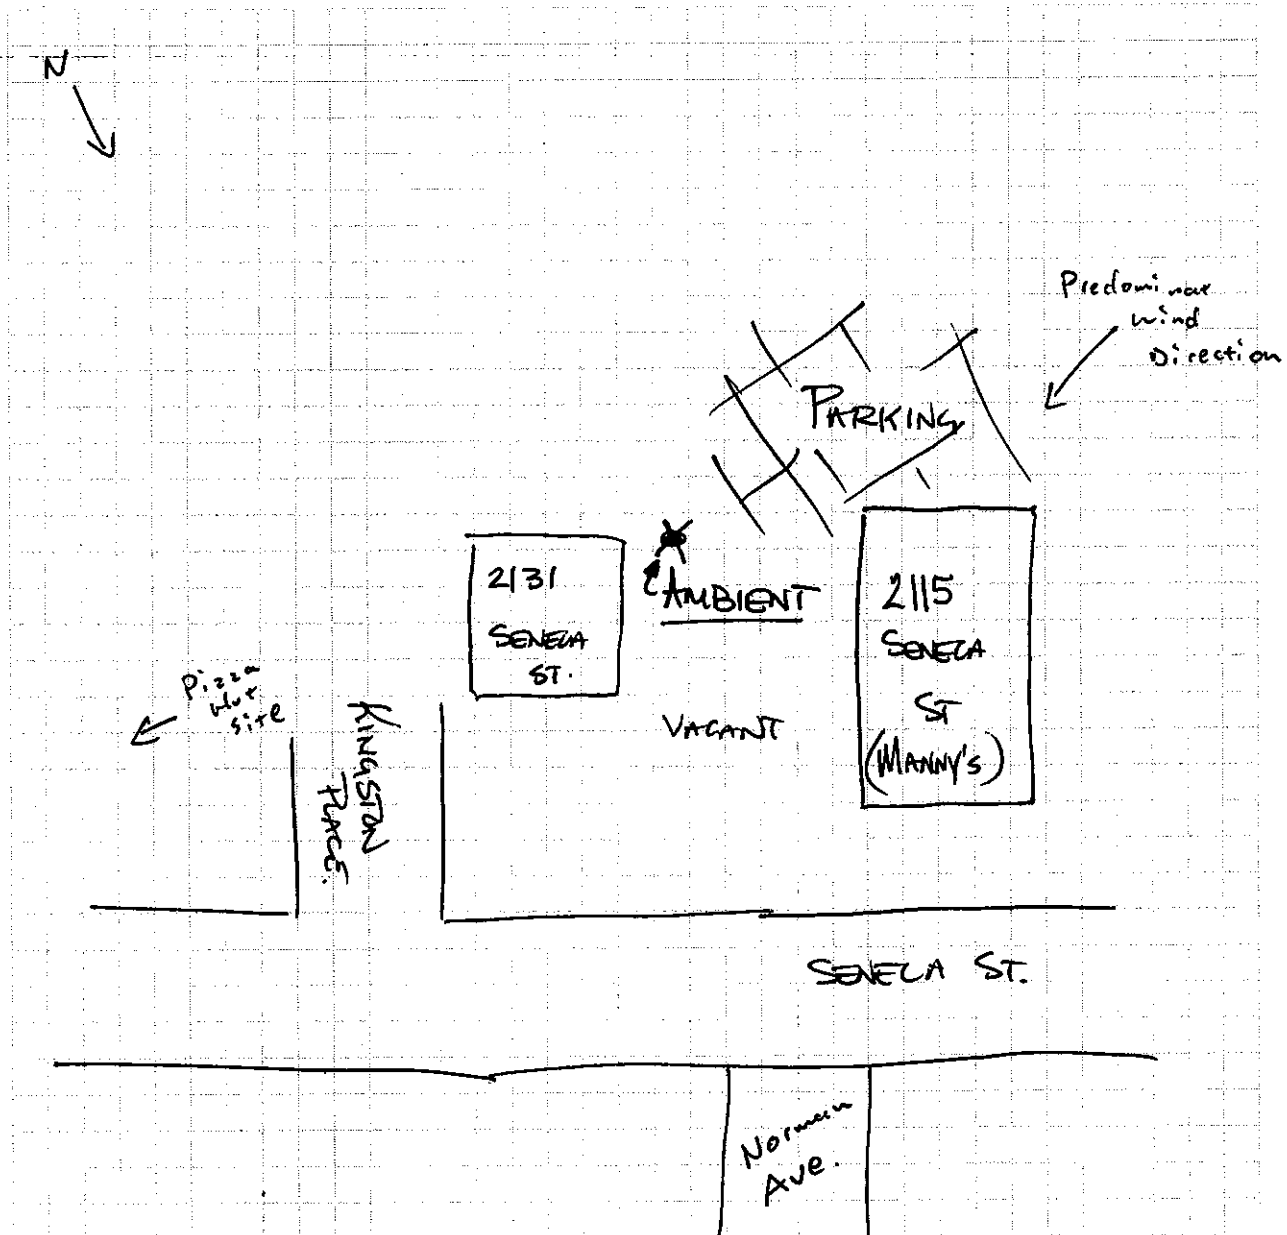 N
Predominae
wind
Direction
PARKING
2131
SENECA
ST.
AMBIENT
2115
SENECA
ST
(MANNY'S)
Pizza
Hut
site
KINGSTON
PLACE.
VACANT
SENECA ST.
Norman
Ave.